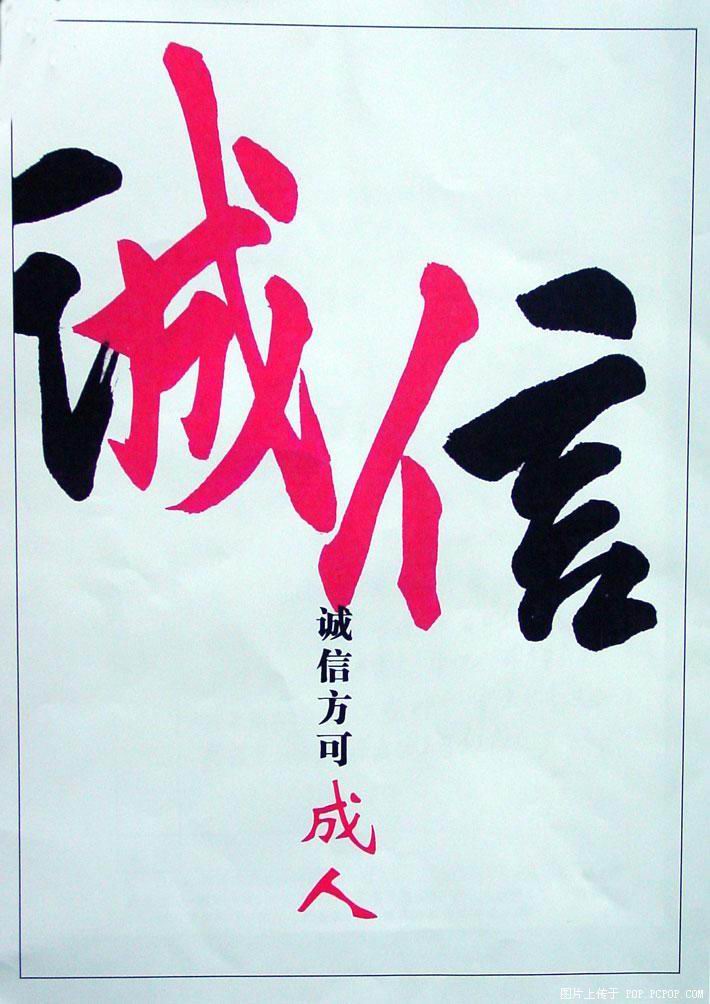 诚信
诚信方可成人
图片上传于 POP.PCPOP.COM